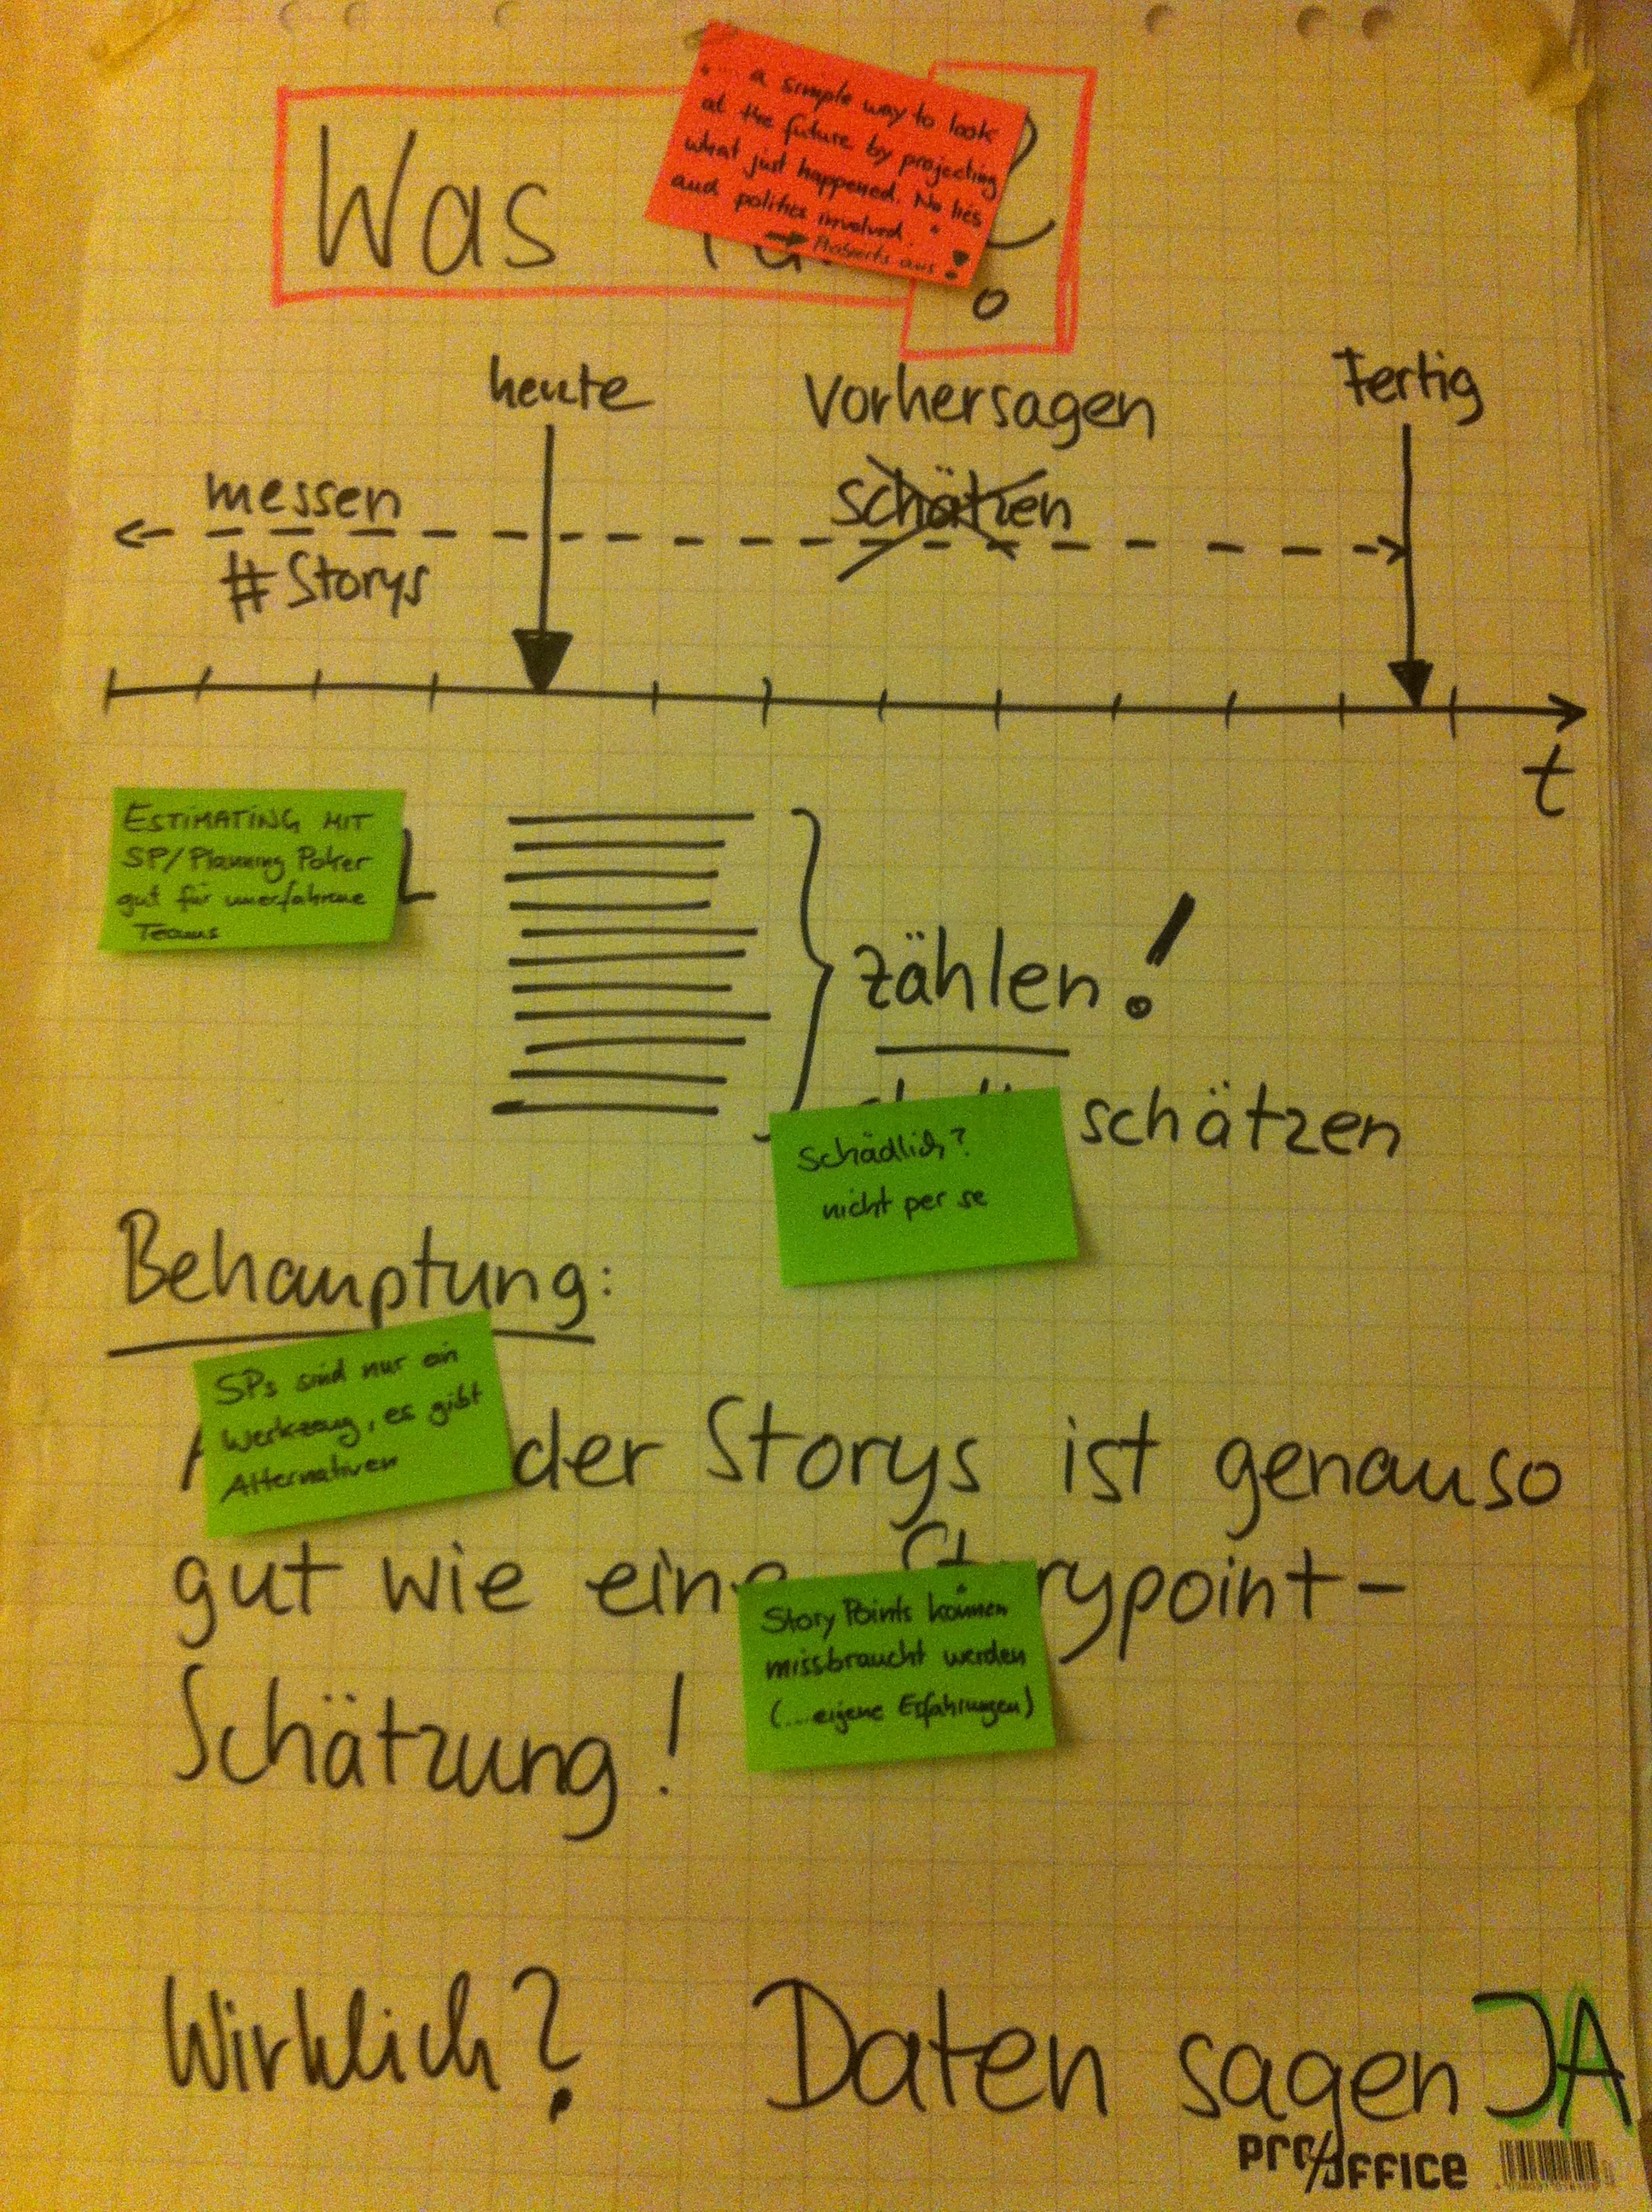 Was
"... a simple way to look
at the future by projecting
what just happened. No lies
and politics involved."
?
heute
Vorhersagen
Fertig
messen
schätzen
#Storys
t
ESTIMATING MIT
SP/Planning Poker
gut für unerfahrene
Teams
L
zählen!
schätzen
Schädlich?
nicht per se
Behauptung:
SPs sind nur ein
Werkzeug, es gibt
Alternativen
der Storys ist genauso
gut wie eine Storypoint-
Story Points können
missbraucht werden
(...eigene Erfahrungen)
Schätzung!
Wirklich? Daten sagen JA
pro/OFFICE